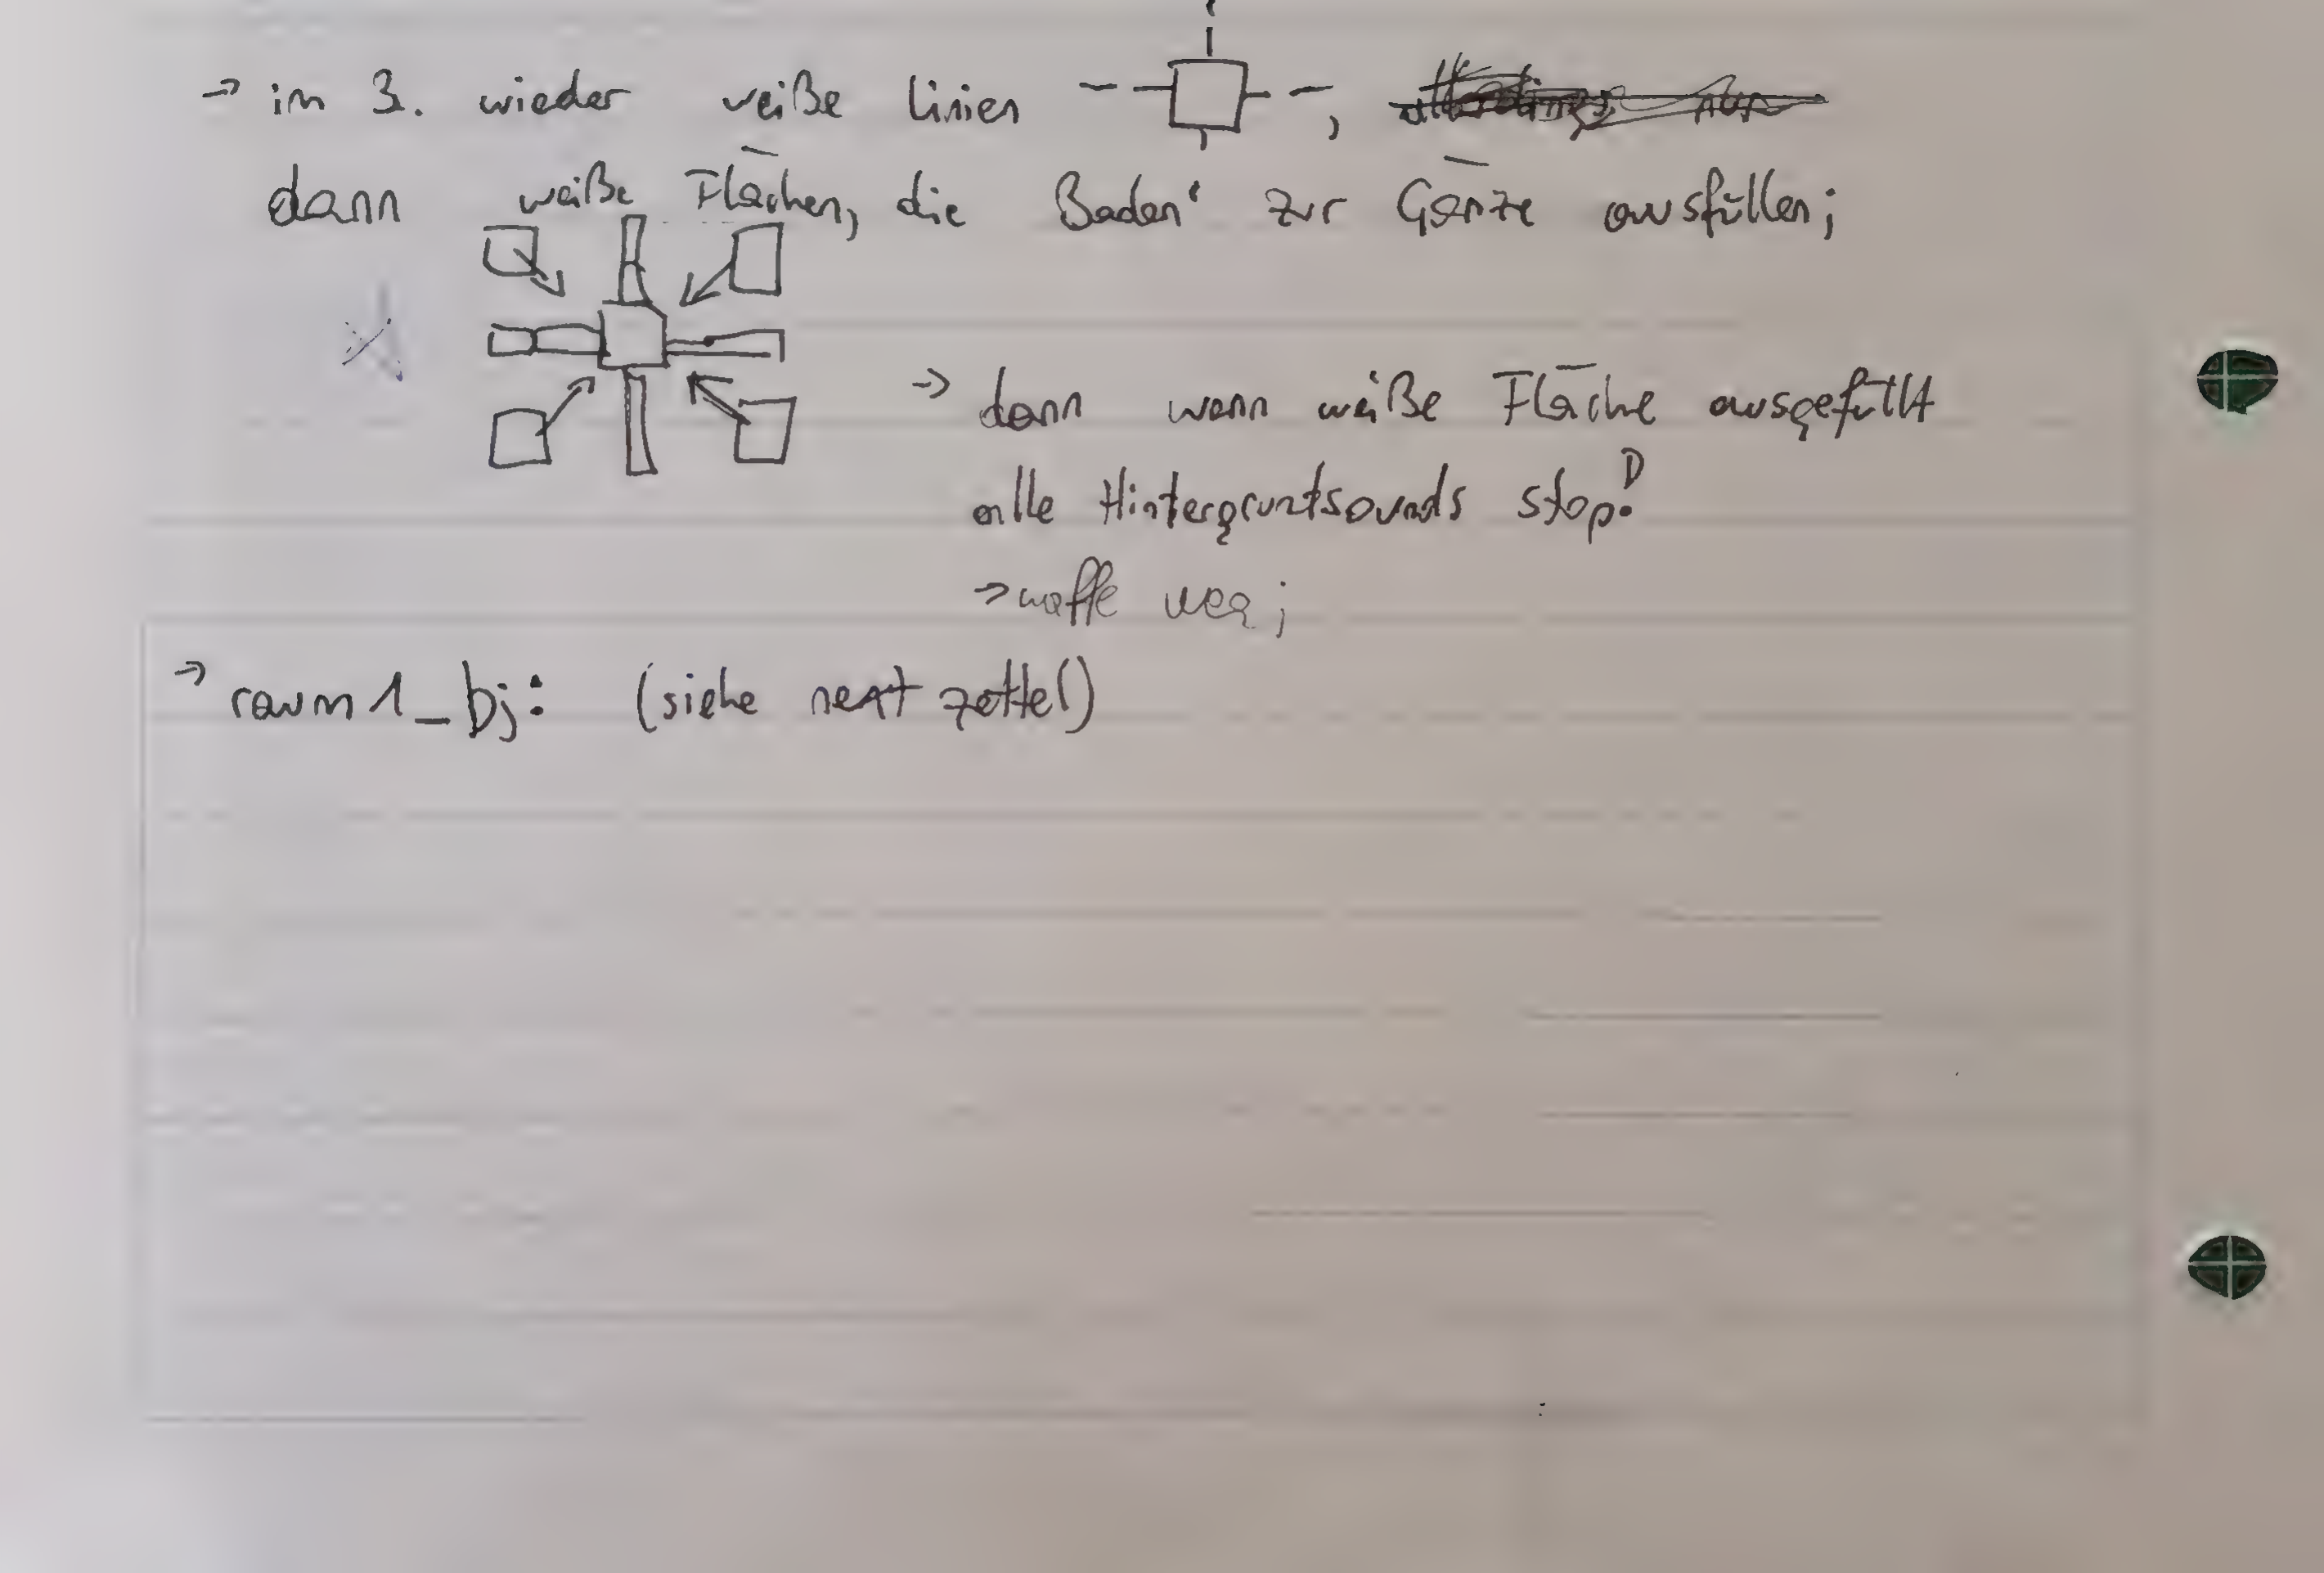 → im 3. wieder weiße linien ,
dann weiße Flächen, die Boden' zur Gänze ausfüllen;
→ dann wenn weiße Fläche ausgefüllt
alle Hintergrundsounds stop!
→ waffe weg;
→ raum1_bj: (siehe next zettel)